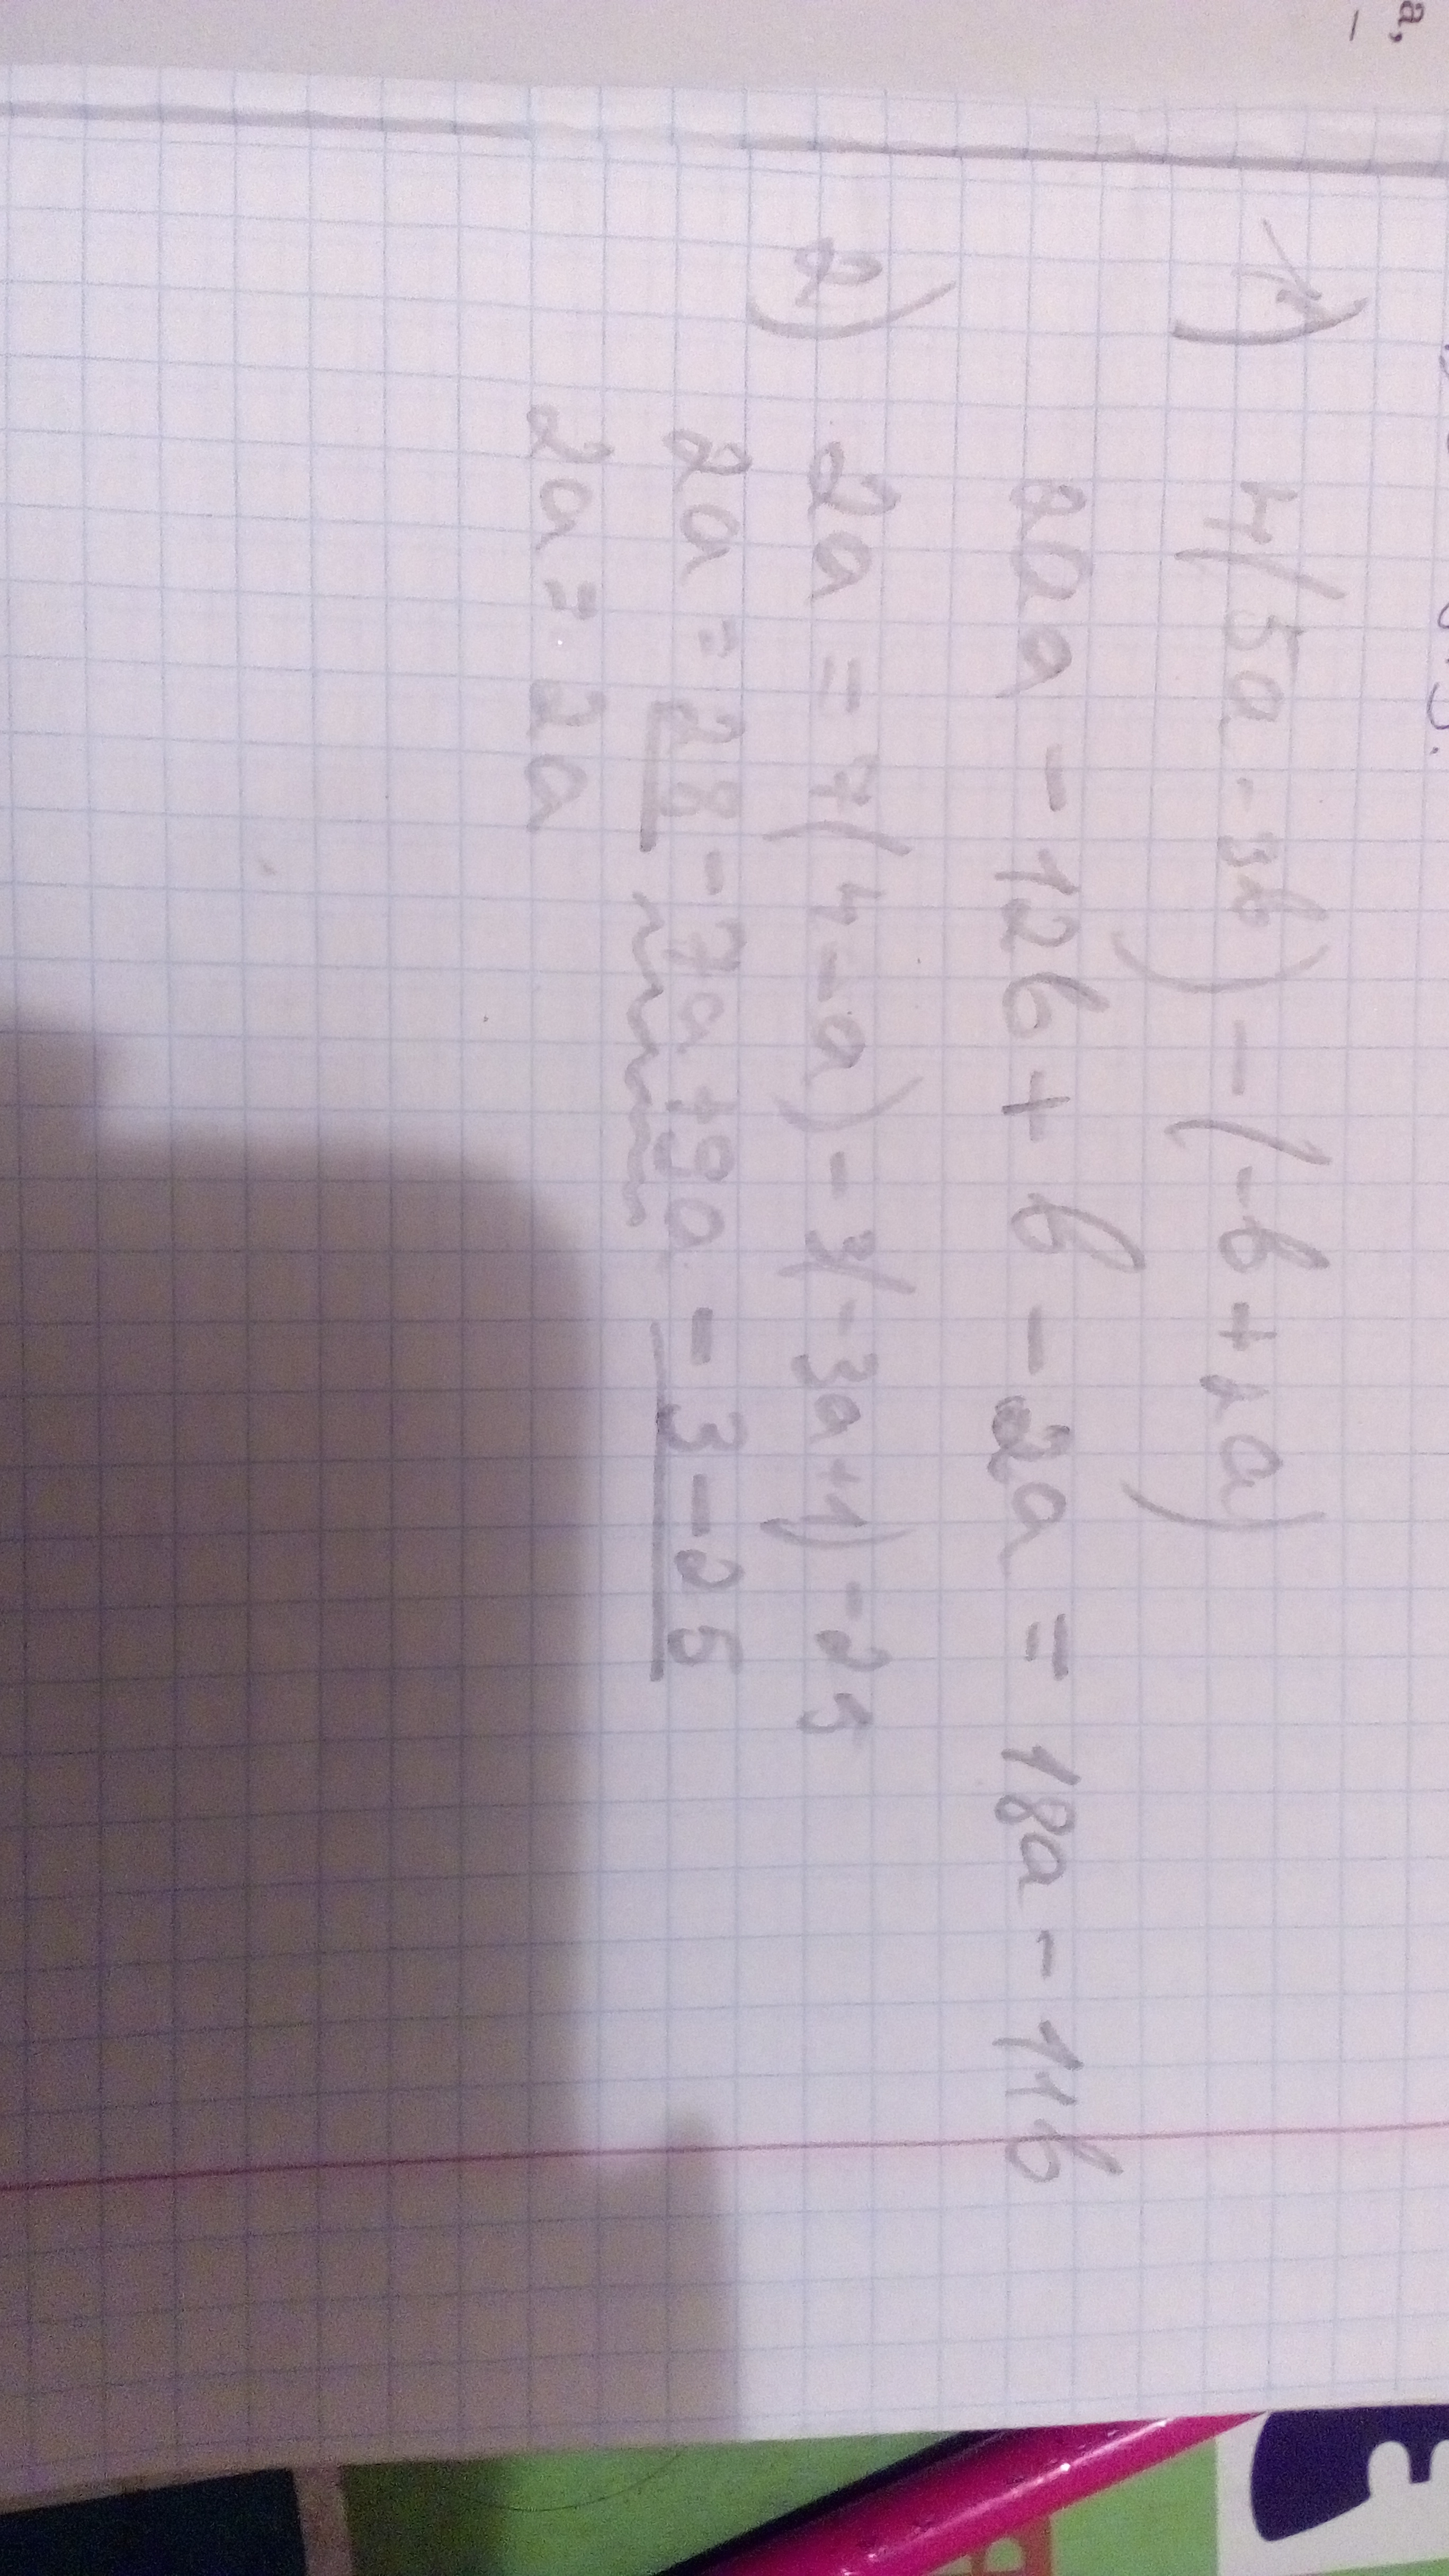 1) 4(5a-3b)-(-b+2a)
20a-12b+b-2a=18a-11b
2) 2a=7(4-a)-3(-3a+1)-25
2a=28-7a+9a-3-25
2a=2a